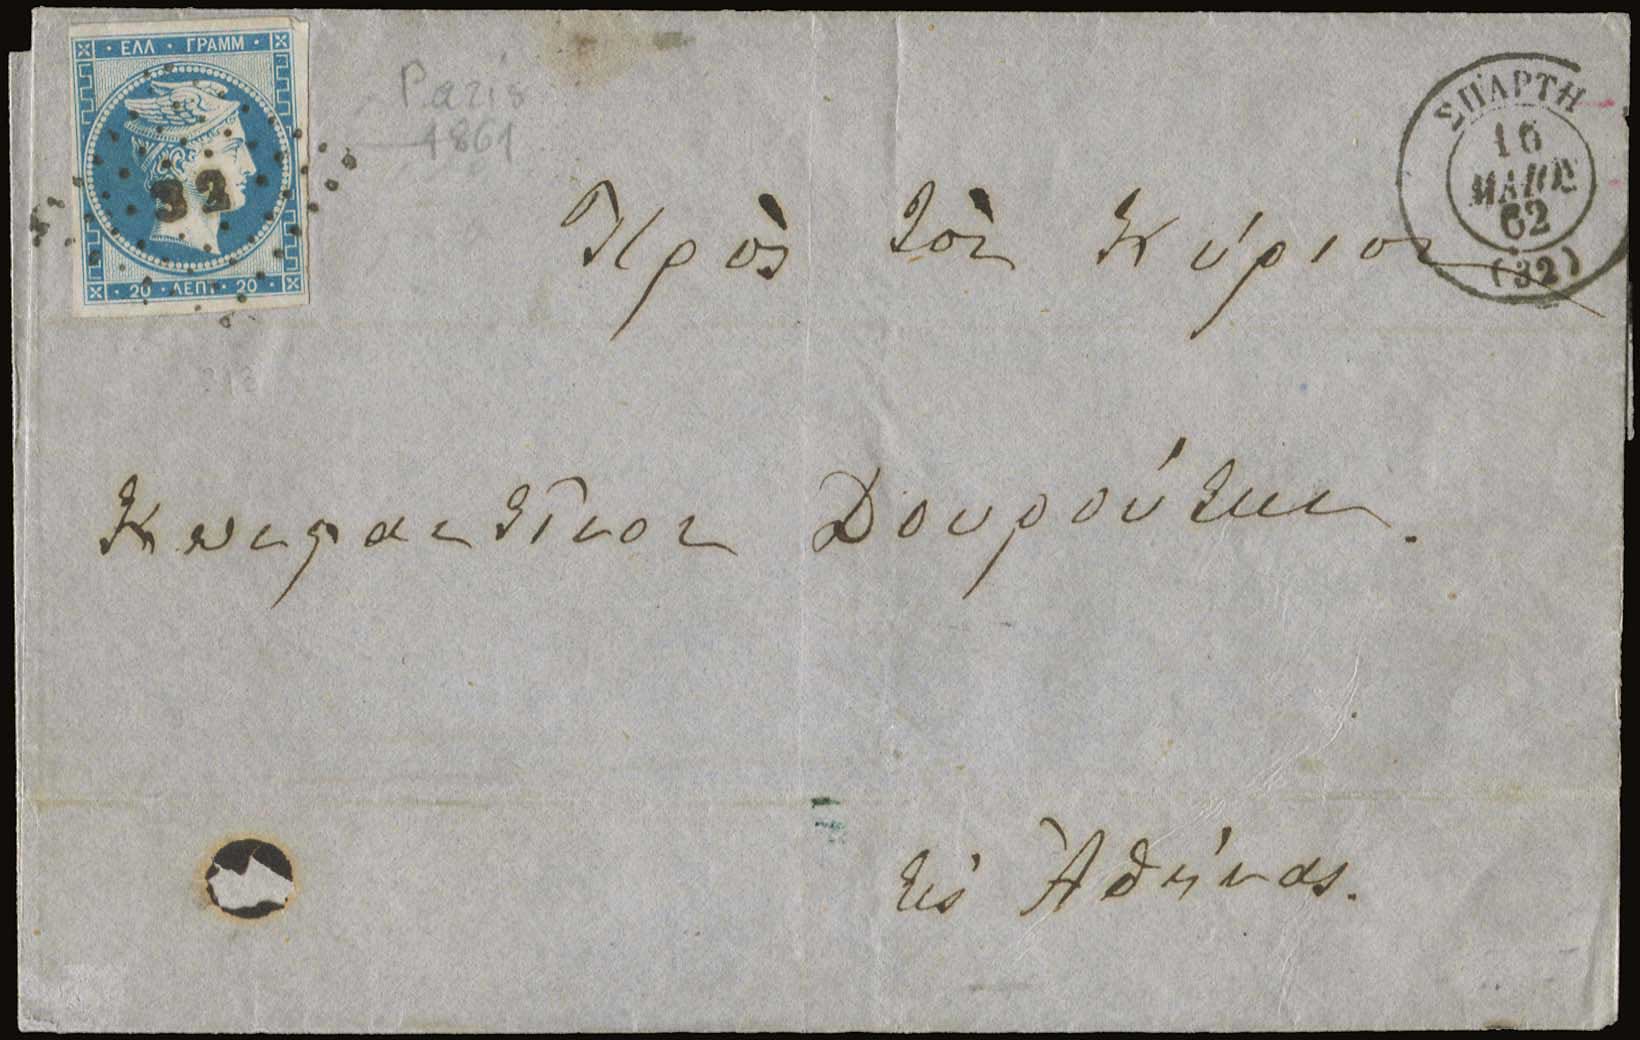 · ΕΛΛ · ΓΡΑΜΜ ·
32
· 20 · ΛΕΠΤ · 20 ·
Paris
1861
ΣΠΑΡΤΗ
16
ΜΑΙΟΣ
62
(32)
Πρὸς τὸν Κύριον
Κωνσταντῖνον Δουρούτην.
εἰς Ἀθήνας.